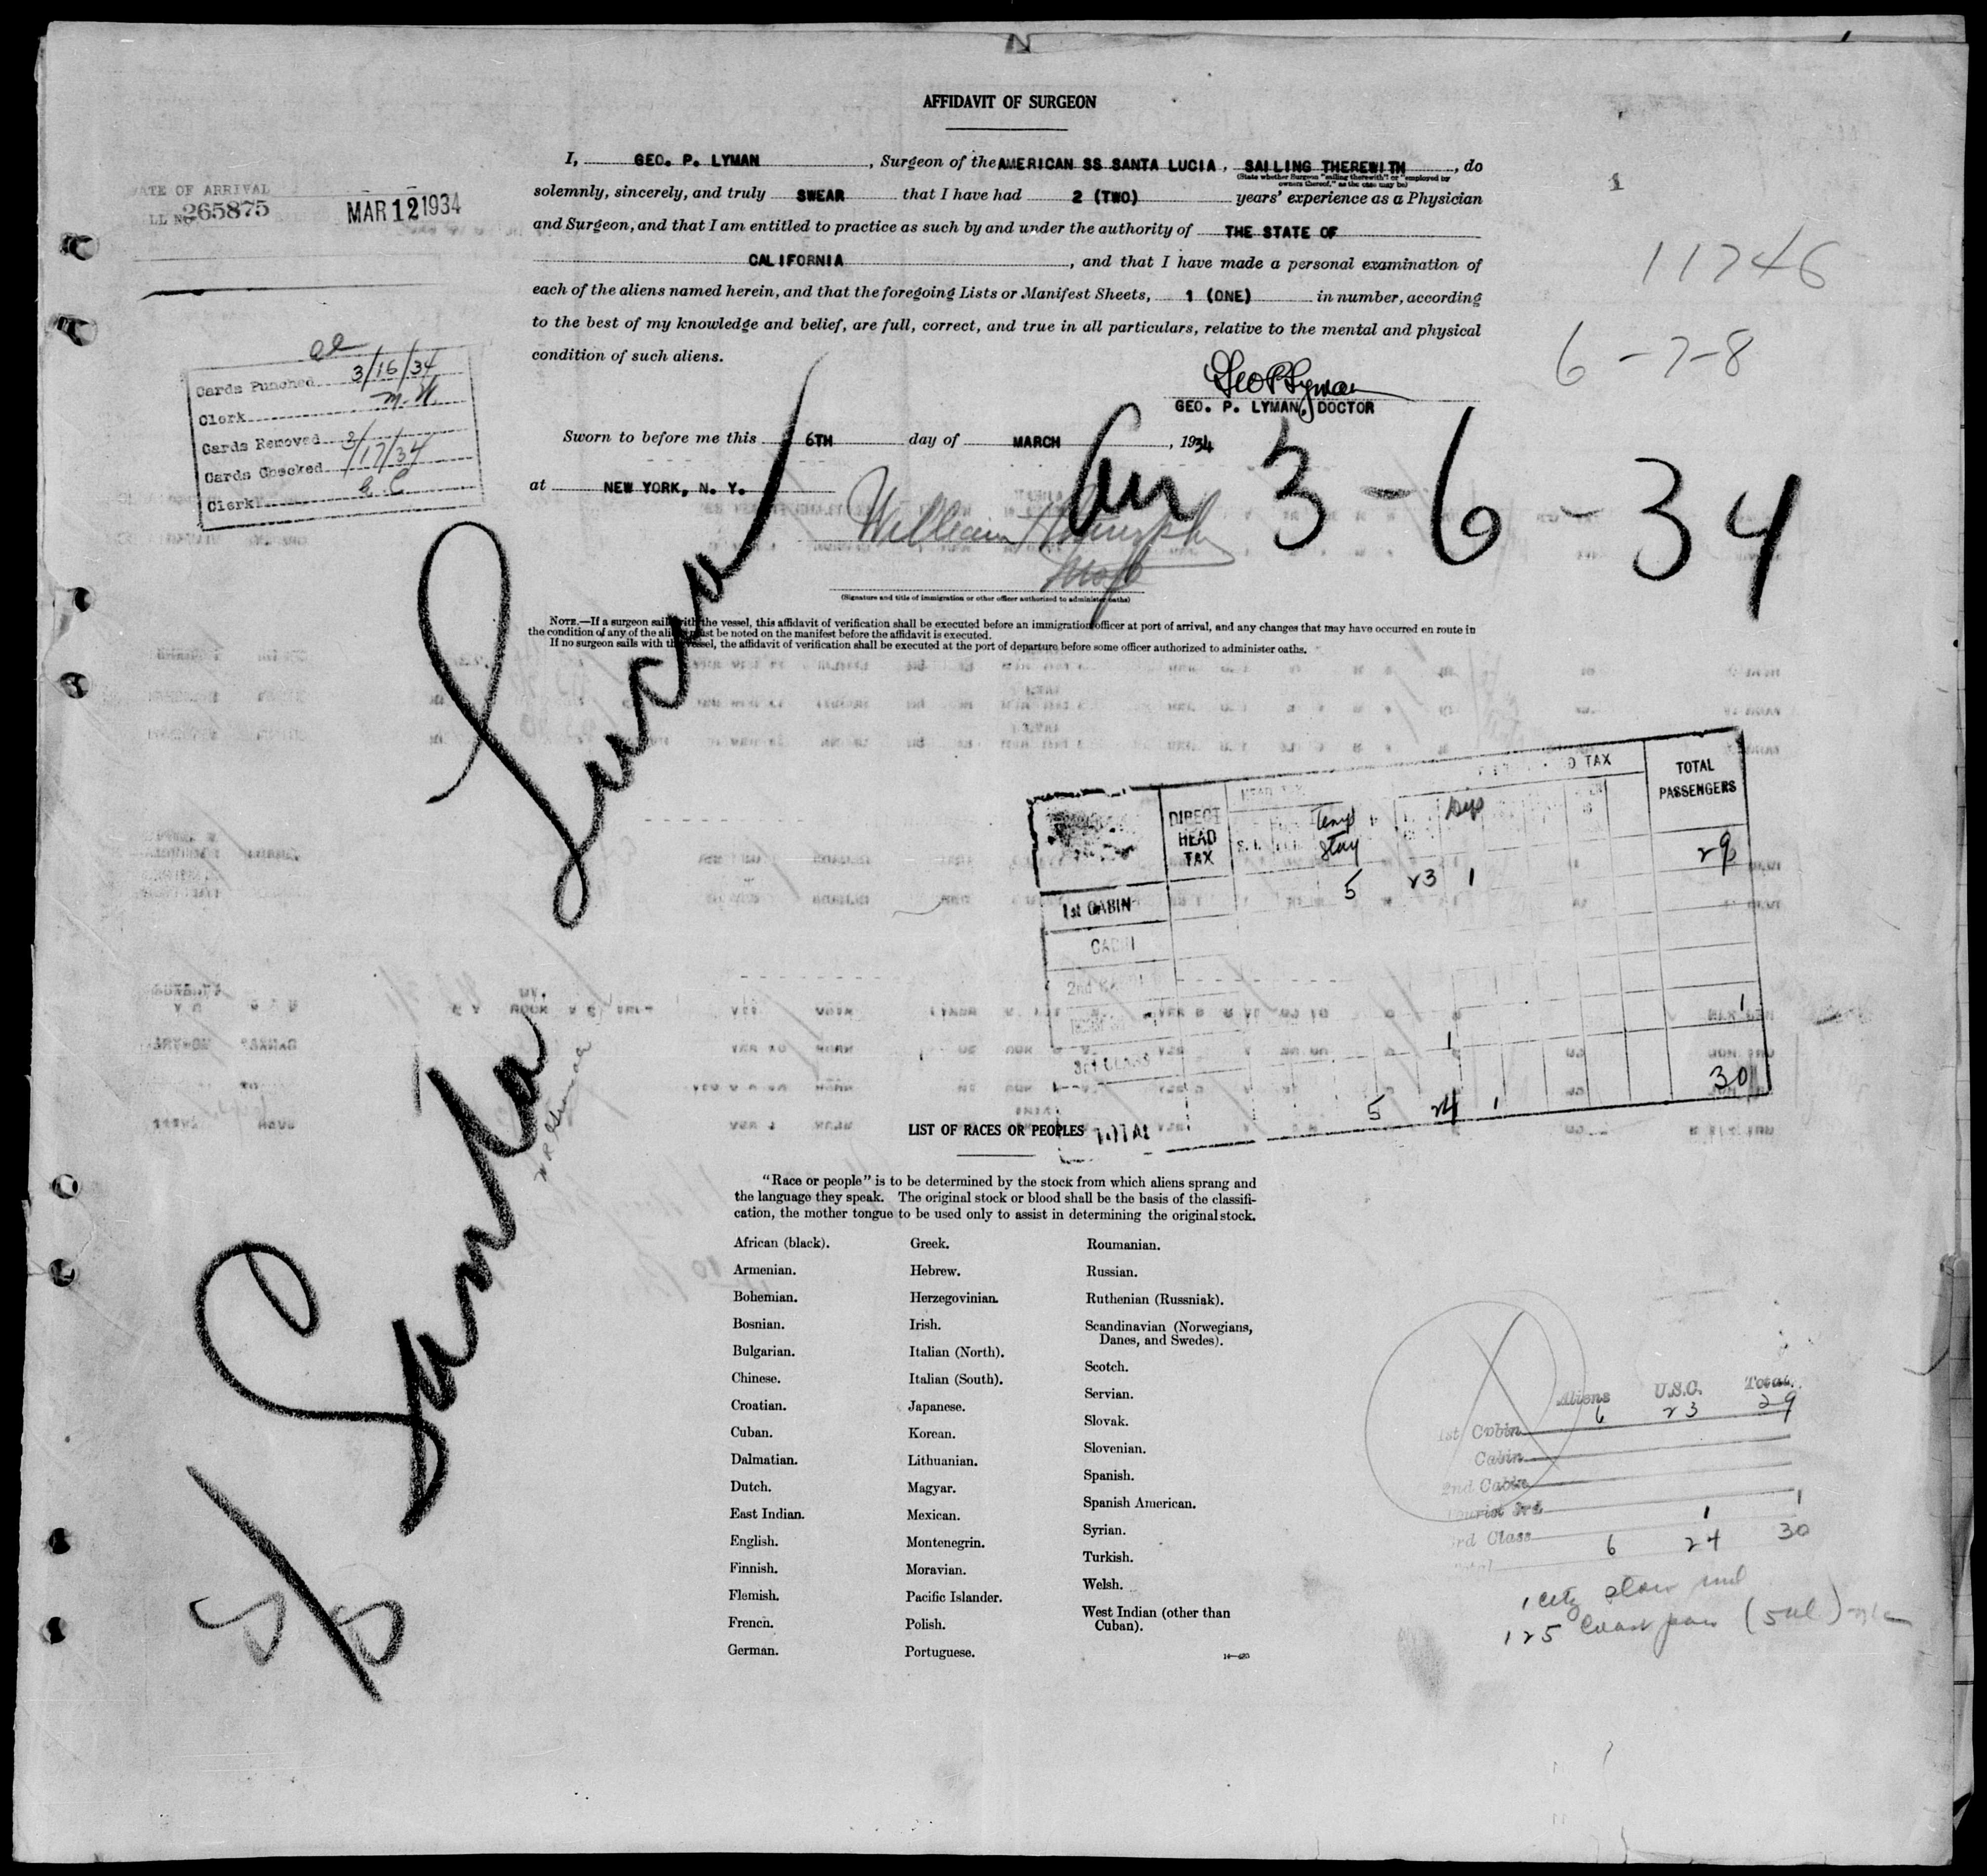 AFFIDAVIT OF SURGEON
I, GEO. P. LYMAN, Surgeon of the AMERICAN SS SANTA LUCIA, SAILING THEREWITH, do
(State whether Surgeon "sailing therewith" or "employed by owners thereof," as the case may be)
solemnly, sincerely, and truly SWEAR that I have had 2 (TWO) years' experience as a Physician
and Surgeon, and that I am entitled to practice as such by and under the authority of THE STATE OF
CALIFORNIA, and that I have made a personal examination of
each of the aliens named herein, and that the foregoing Lists or Manifest Sheets, 1 (ONE) in number, according
to the best of my knowledge and belief, are full, correct, and true in all particulars, relative to the mental and physical
condition of such aliens.
Geo P Lyman
GEO. P. LYMAN, DOCTOR
Sworn to before me this 6TH day of MARCH, 1934
at NEW YORK, N. Y.
William H Murphy
(Signature and title of immigration or other officer authorized to administer oaths)
NOTE.—If a surgeon sails with the vessel, this affidavit of verification shall be executed before an immigration officer at port of arrival, and any changes that may have occurred en route in
the condition of any of the aliens must be noted on the manifest before the affidavit is executed.
If no surgeon sails with the vessel, the affidavit of verification shall be executed at the port of departure before some officer authorized to administer oaths.
ATE OF ARRIVAL
LL NO. 265875
MAR 12 1934
Cards Punched 3/16/34
Clerk M. W.
Cards Removed 3/17/34
Cards Checked
Clerk G. C
11746
6-7-8
3-6-34
S/S Santa Lucia
DIRECT HEAD TAX
HEAD TAX
Temp Stay
Dep
TAX
TOTAL PASSENGERS
1st CABIN 5 23 1 29
CABIN
2nd CABIN
3rd CLASS 1 1
TOTAL 5 24 1 30
LIST OF RACES OR PEOPLES
"Race or people" is to be determined by the stock from which aliens sprang and
the language they speak. The original stock or blood shall be the basis of the classifi-
cation, the mother tongue to be used only to assist in determining the original stock.
African (black).
Armenian.
Bohemian.
Bosnian.
Bulgarian.
Chinese.
Croatian.
Cuban.
Dalmatian.
Dutch.
East Indian.
English.
Finnish.
Flemish.
French.
German.
Greek.
Hebrew.
Herzegovinian.
Irish.
Italian (North).
Italian (South).
Japanese.
Korean.
Lithuanian.
Magyar.
Mexican.
Montenegrin.
Moravian.
Pacific Islander.
Polish.
Portuguese.
Roumanian.
Russian.
Ruthenian (Russniak).
Scandinavian (Norwegians,
Danes, and Swedes).
Scotch.
Servian.
Slovak.
Slovenian.
Spanish.
Spanish American.
Syrian.
Turkish.
Welsh.
West Indian (other than
Cuban).
Aliens U.S.C. Total
1st Cabin 6 23 29
Cabin
2nd Cabin
Tourist 3rd
3rd Class 1 1
Total 6 24 30
125